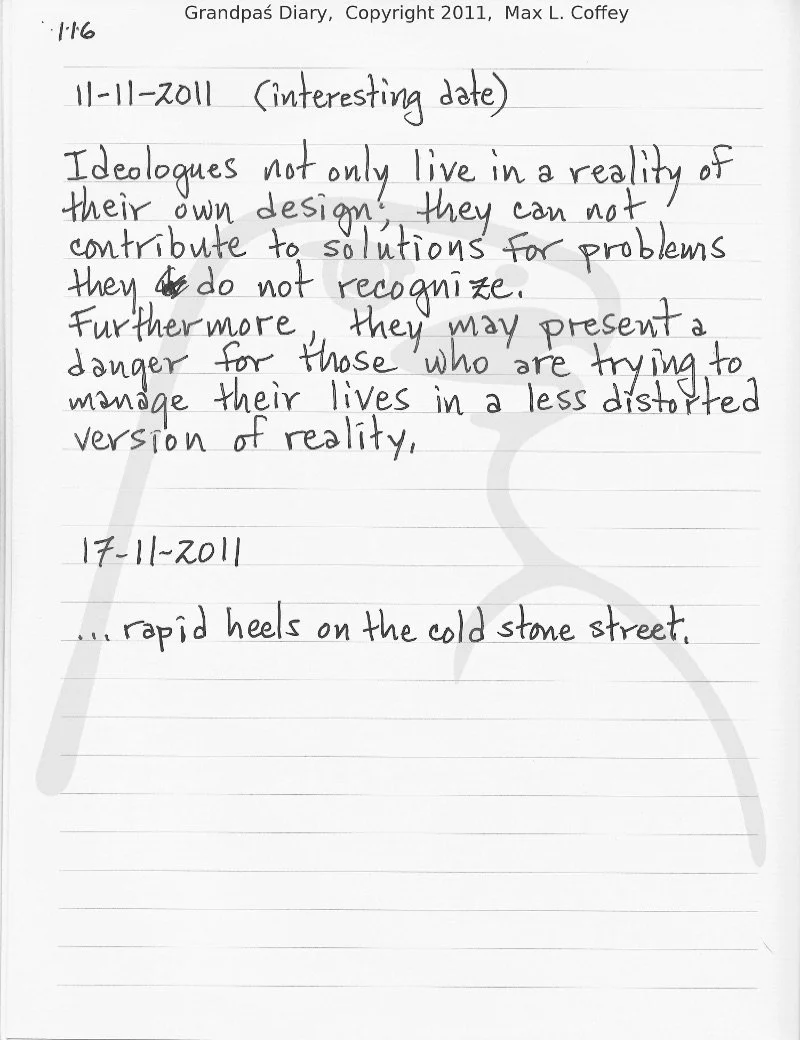 Grandpaś Diary, Copyright 2011, Max L. Coffey
116
11-11-2011 (interesting date)
Ideologues not only live in a reality of
their own design; they can not
contribute to solutions for problems
they do not recognize.
Furthermore, they may present a
danger for those who are trying to
manage their lives in a less distorted
version of reality.
17-11-2011
... rapid heels on the cold stone street.